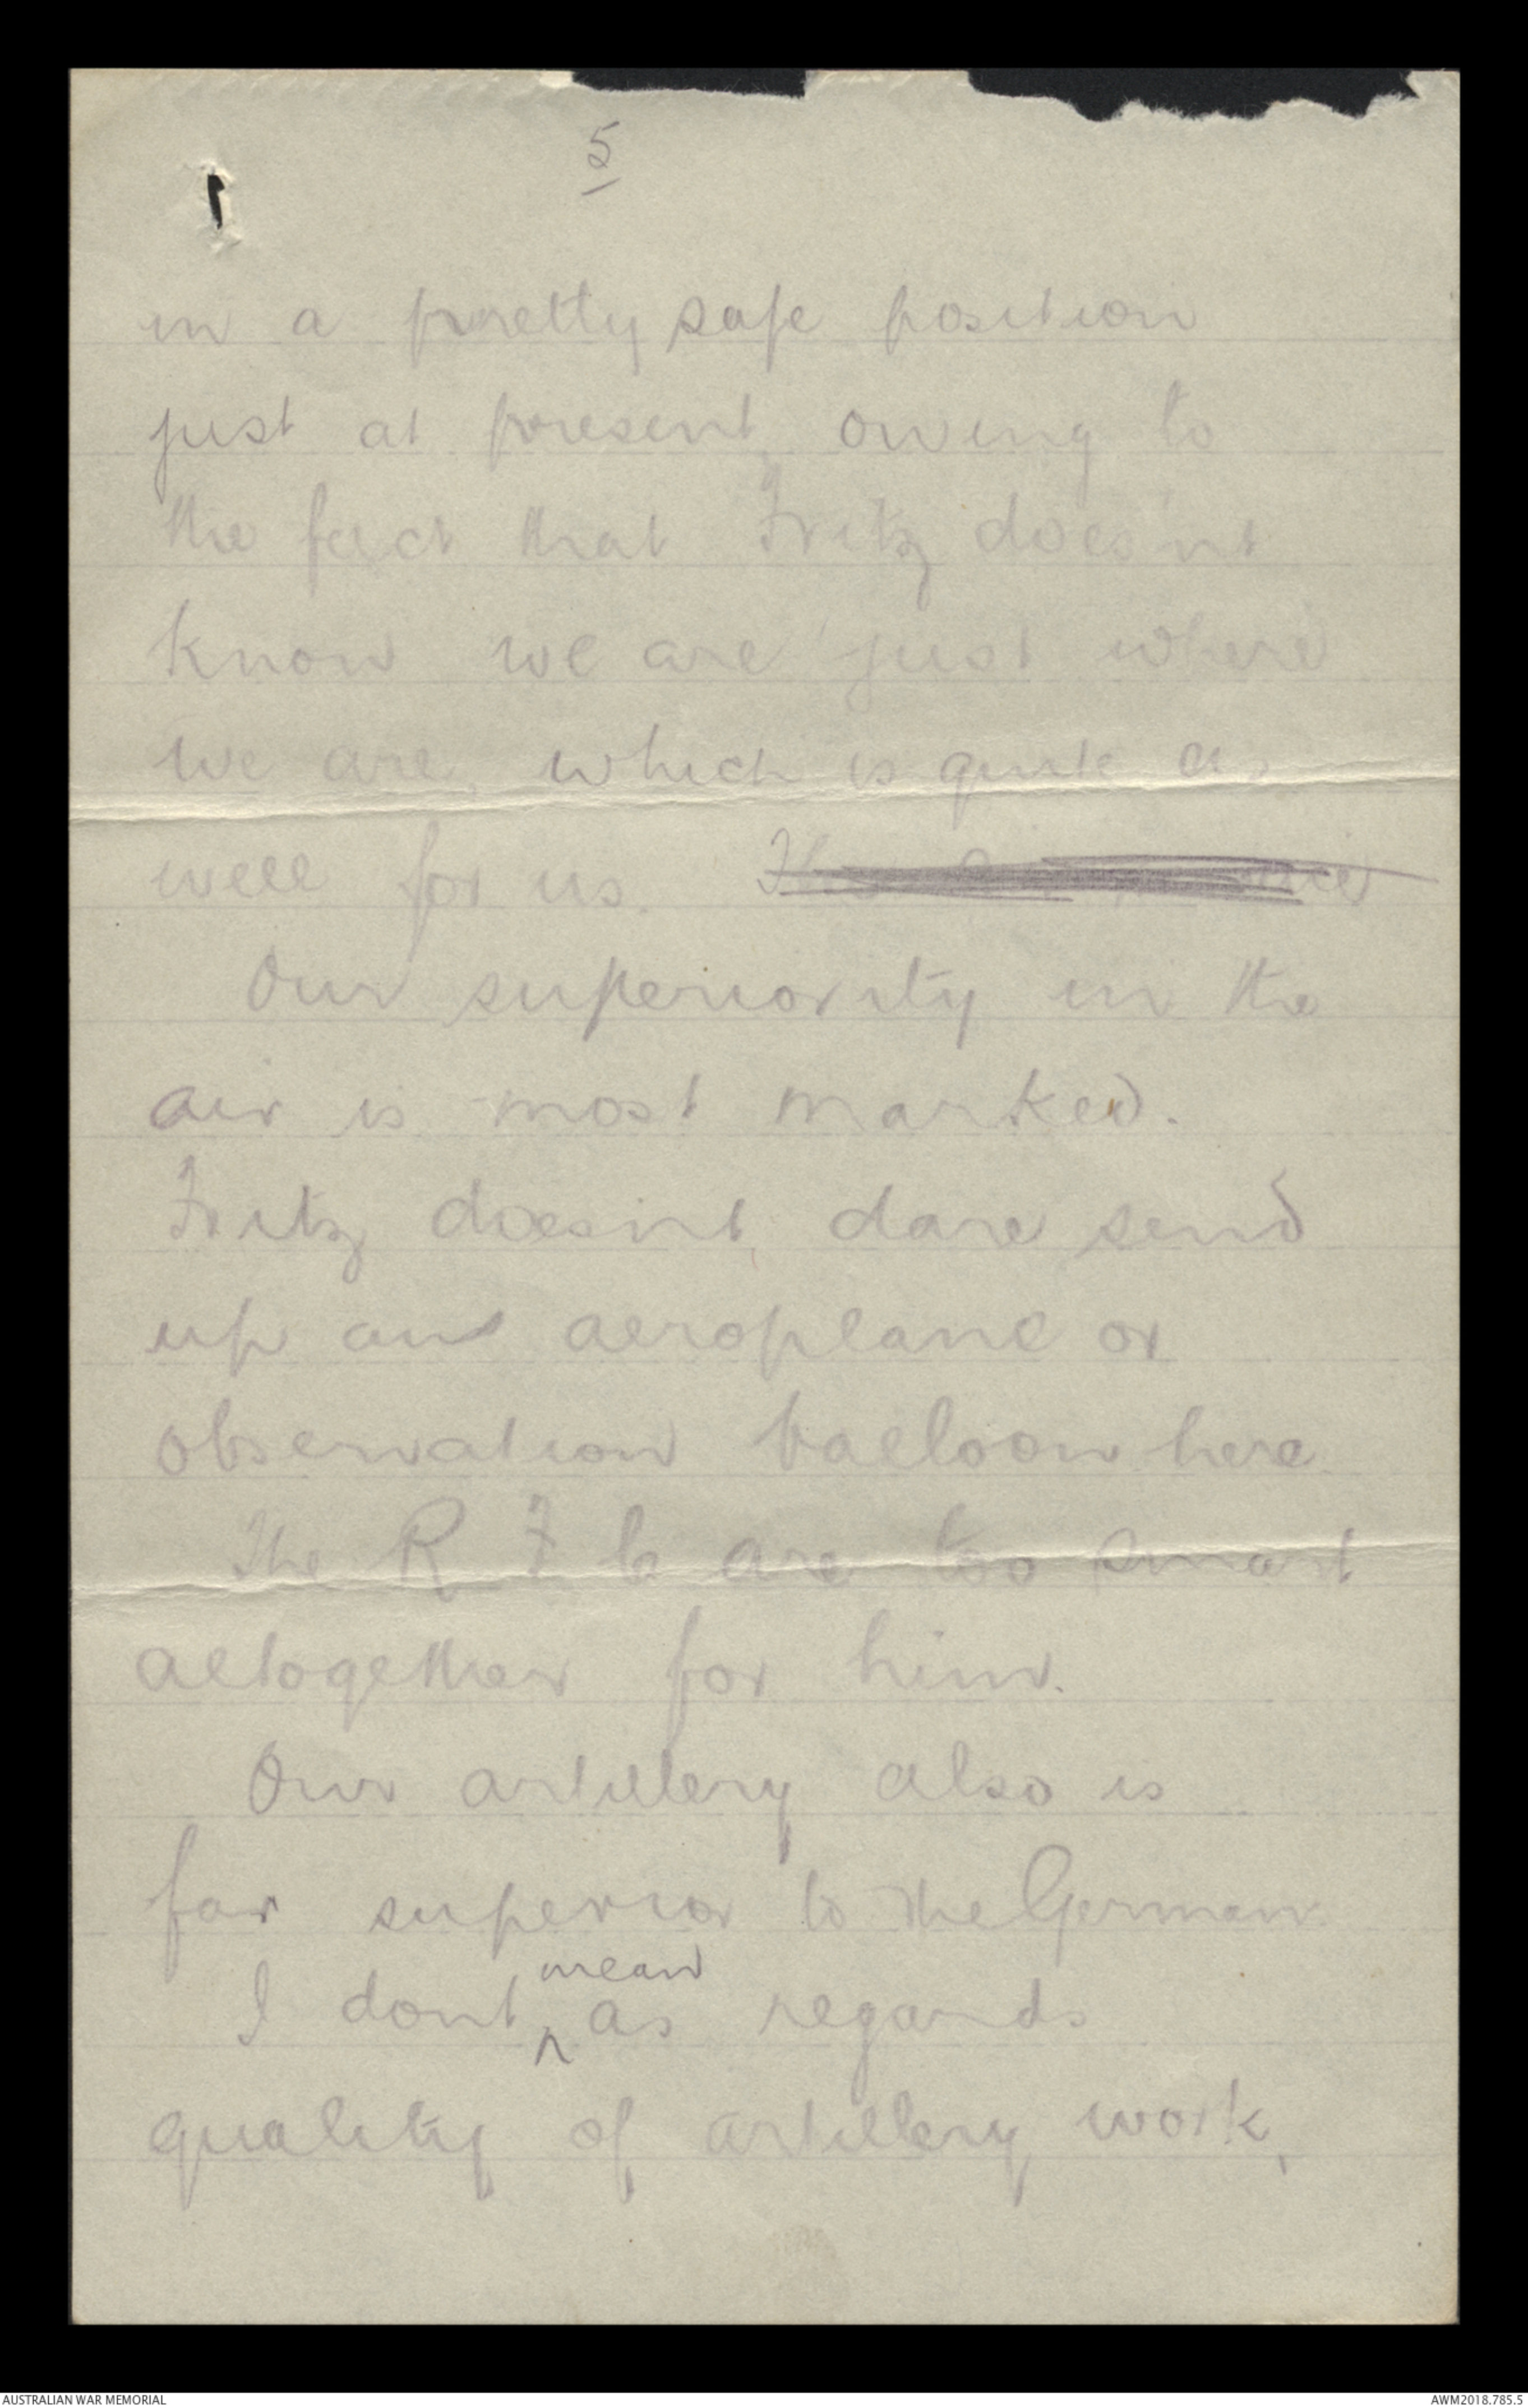 5
in a pretty safe position
just at present owing to
the fact that Fritz does'nt
know we are just where
we are, which is quite as
well for us.
Our superiority in the
air is most marked.
Fritz doesint dare send
up an aeroplane or
observation balloon here
The R F C are too smart
altogether for him.
Our artillery also is
far superior to the German
mean
I dont ^ as regards
quality of artillery work,
AUSTRALIAN WAR MEMORIAL
AWM2018.785.5